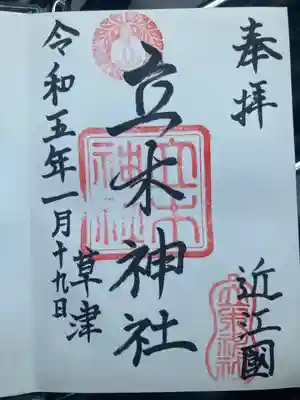 奉拝
近江國
立木神社
草津
令和五年一月十九日
立木神社